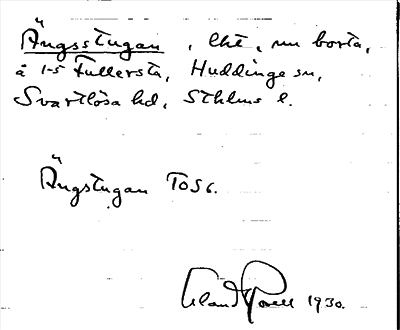 Ängsstugan, lht, nu borta,
å 1-5 Fullersta, Huddinge sn,
Svartlösa hd, Sthlms l.
Ängstugan TOSG.
1930.